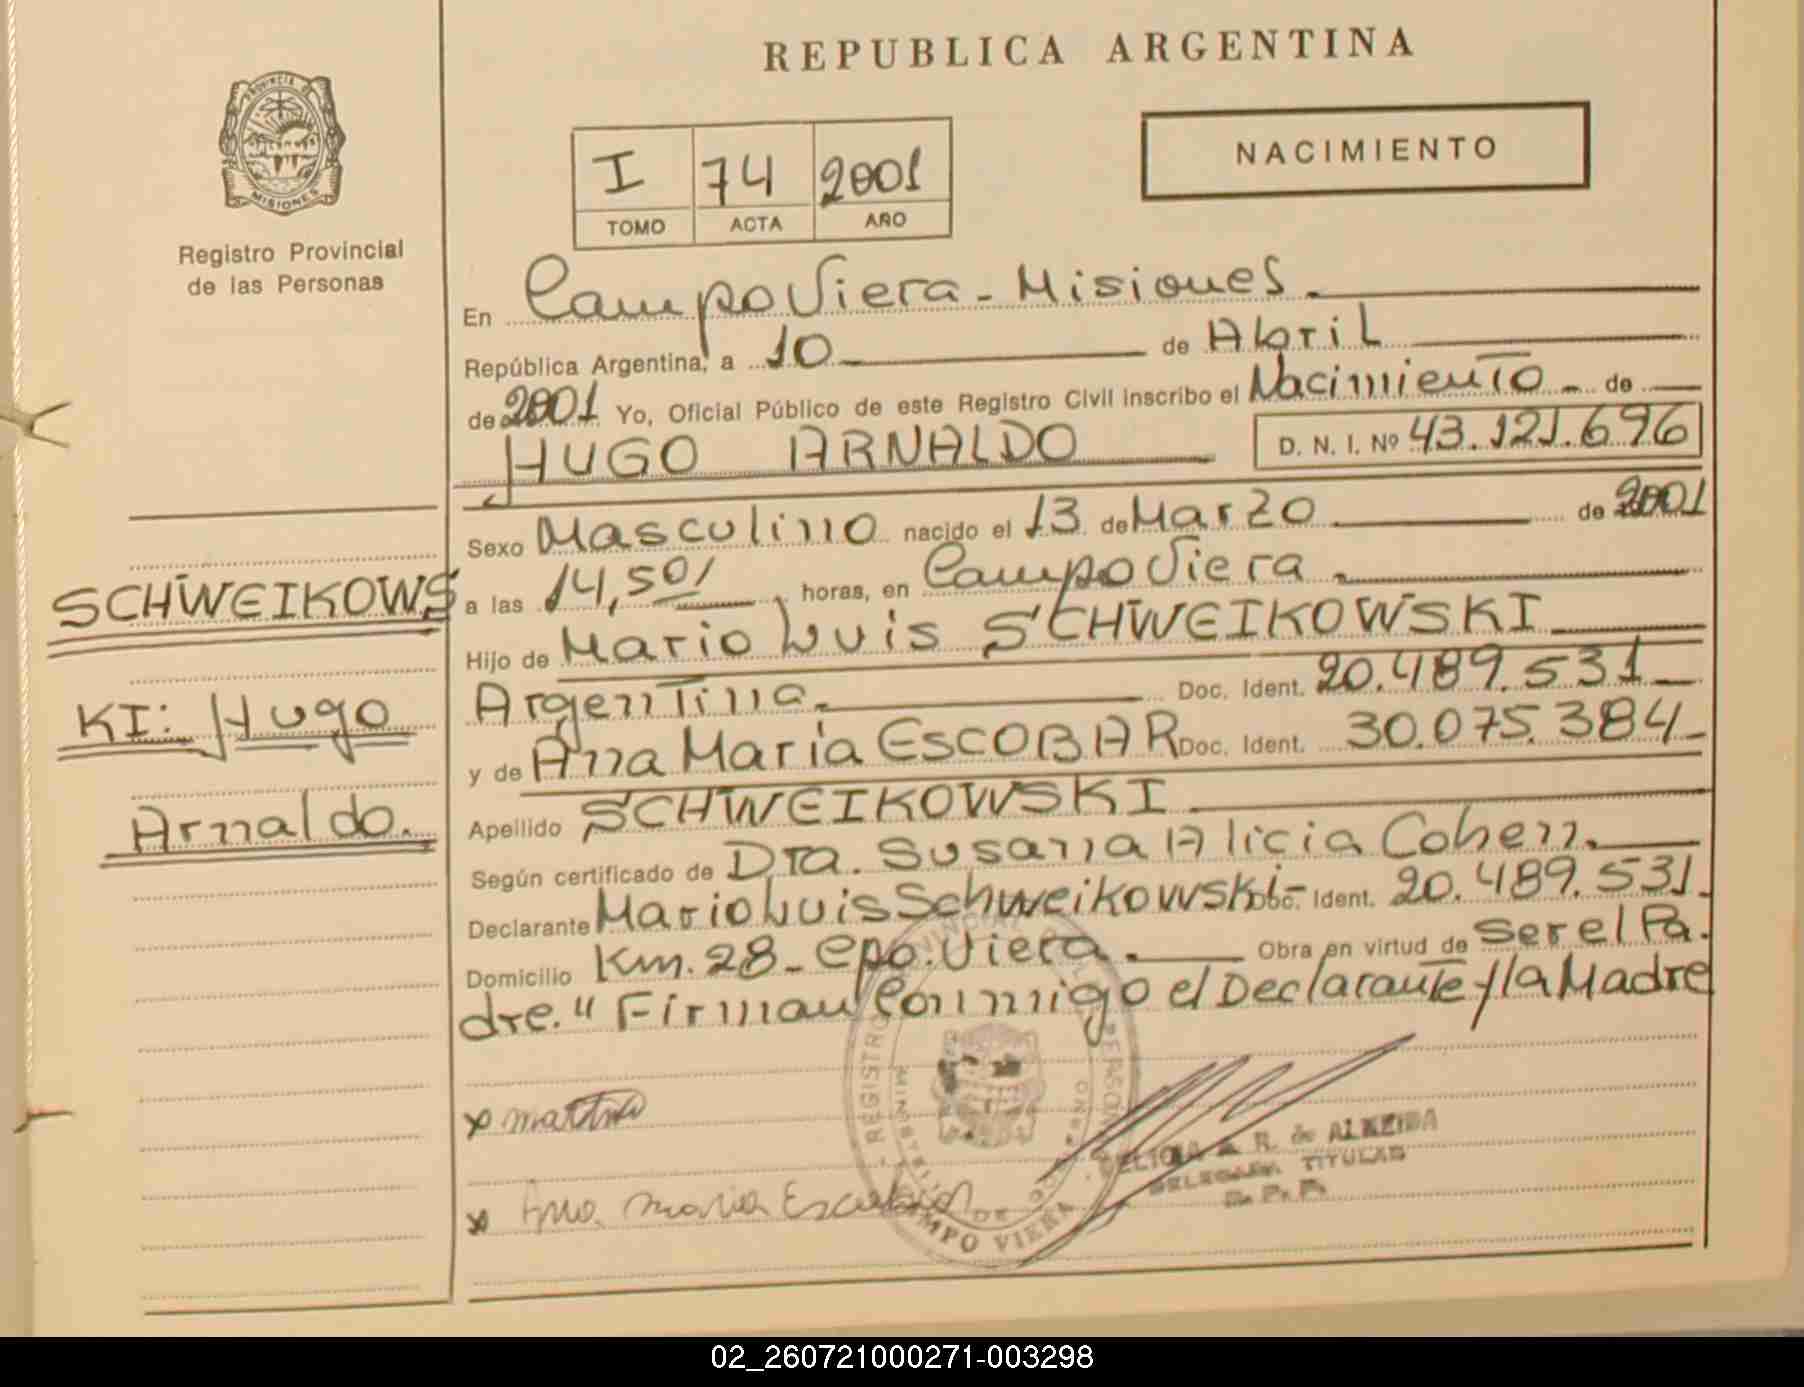 REPUBLICA ARGENTINA
PROVINCIA DE
MISIONES
Registro Provincial
de las Personas
NACIMIENTO
I 74 2001
TOMO ACTA AÑO
En Campo Viera - Misiones.
República Argentina, a 10 de Abril
de 2001 Yo, Oficial Público de este Registro Civil inscribo el Nacimiento - de
HUGO ARNALDO D. N. I. Nº 43.121.696
Sexo Masculino nacido el 13 de Marzo de 2001
a las 14,50 horas, en Campo Viera.
Hijo de Mario Luis SCHWEIKOWSKI
Argentina. Doc. Ident. 20.489.531
y de Ana María ESCOBAR Doc. Ident. 30.075.384
Apellido SCHWEIKOWSKI
Según certificado de Dra. Susana Alicia Cohen.
Declarante Mario Luis Schweikowski- Doc. Ident. 20.489.531.
Domicilio Km. 28 - Cpo. Viera. Obra en virtud de ser el Pa.
dre." Firman Conmigo el Declarante y la Madre
SCHWEIKOWS
KI: Hugo
Arnaldo.
x
x Ana maria Escobar
REGISTRO PROVINCIAL DE LAS PERSONAS
MINISTERIO DE GOBIERNO
CAMPO VIERA
A. R. de ALMEIDA
DELEGADA TITULAR
R. P. P.
02_260721000271-003298